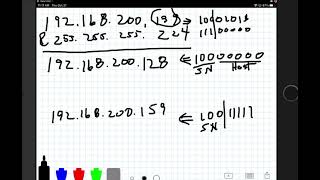 192.168.200.138
& 255. 255. 255. 224 111|00000
192.168.200.128 ⇐ 10000000
SN Host
192.168.200.159 ⇐ 100|11111
SN